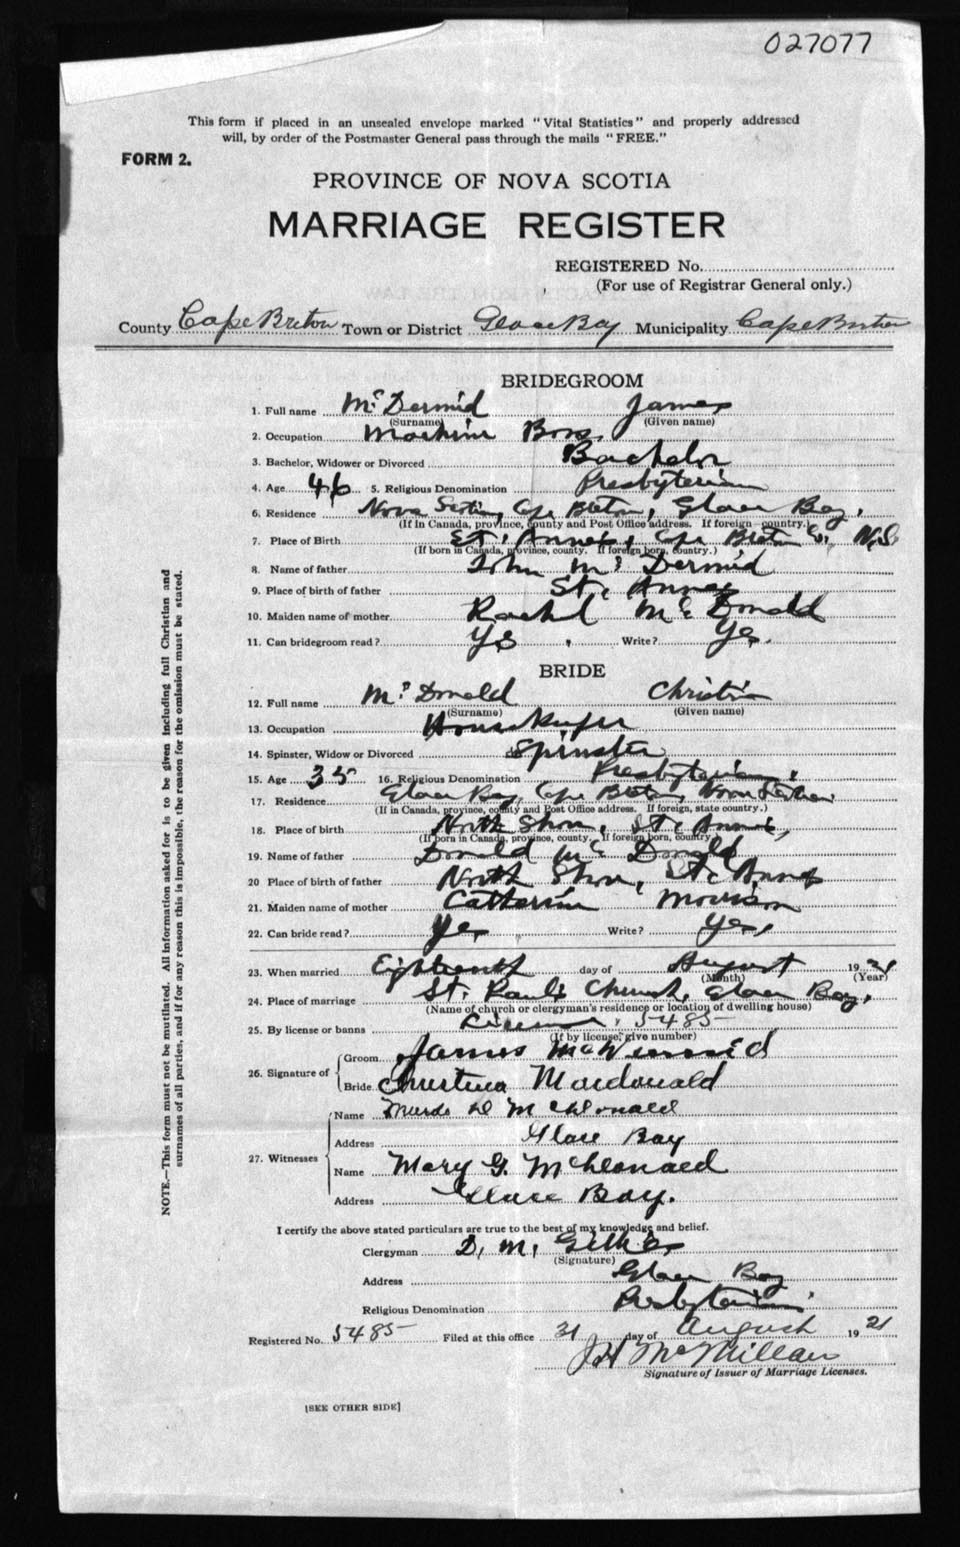 027077
This form if placed in an unsealed envelope marked "Vital Statistics" and properly addressed
will, by order of the Postmaster General pass through the mails "FREE."
FORM 2.
PROVINCE OF NOVA SCOTIA
MARRIAGE REGISTER
REGISTERED No.
(For use of Registrar General only.)
County Cape Breton Town or District Glace Bay Municipality Cape Breton
BRIDEGROOM
1. Full name McDermid James
(Surname) (Given name)
2. Occupation Machine Boss
3. Bachelor, Widower or Divorced Bachelor
4. Age 46 5. Religious Denomination Presbyterian
6. Residence Nova Scotia, Cape Breton, Glace Bay.
(If in Canada, province, county and Post Office address. If foreign country.)
7. Place of Birth St. Annes, Cape Breton Co., N.S.
(If born in Canada, province, county. If foreign born, country.)
8. Name of father John McDermid
9. Place of birth of father St. Annes
10. Maiden name of mother Rachel McDonald
11. Can bridegroom read? Yes, Write? Yes.
BRIDE
12. Full name McDonald Christi
(Surname) (Given name)
13. Occupation Housekeeper
14. Spinster, Widow or Divorced Spinster
15. Age 35 16. Religious Denomination Presbyterian.
17. Residence Glace Bay, Cape Breton, Nova Scotia
(If in Canada, province, county and Post Office address. If foreign, state country.)
18. Place of birth North Shore, St. Annes,
(If born in Canada, province, county. If foreign born, country.)
19. Name of father Donald McDonald
20 Place of birth of father North Shore, St. Annes
21. Maiden name of mother Catherine Morrison
22. Can bride read? Yes Write? Yes,
23. When married Eighteenth day of August 1921
(Month) (Year)
24. Place of marriage St. Paul's Church, Glace Bay,
(Name of church or clergyman's residence or location of dwelling house)
25. By license or banns License, 5485
(If by license, give number)
26. Signature of
Groom James McDermid
Bride Christena Macdonald
27. Witnesses
Name Murdo D McDonald
Address Glace Bay
Name Mary G. McDonald
Address Glace Bay.
I certify the above stated particulars are true to the best of my knowledge and belief.
Clergyman D. M. Gillies
(Signature)
Address Glace Bay
Religious Denomination Presbyterian.
Registered No. 5485 Filed at this office 31 day of August 1921
J H McMillan
Signature of Issuer of Marriage Licenses.
[SEE OTHER SIDE]
NOTE.—This form must not be mutilated. All information asked for is to be given including full Christian and
surnames of all parties, and if for any reason this is impossible, the reason for the omission must be stated.